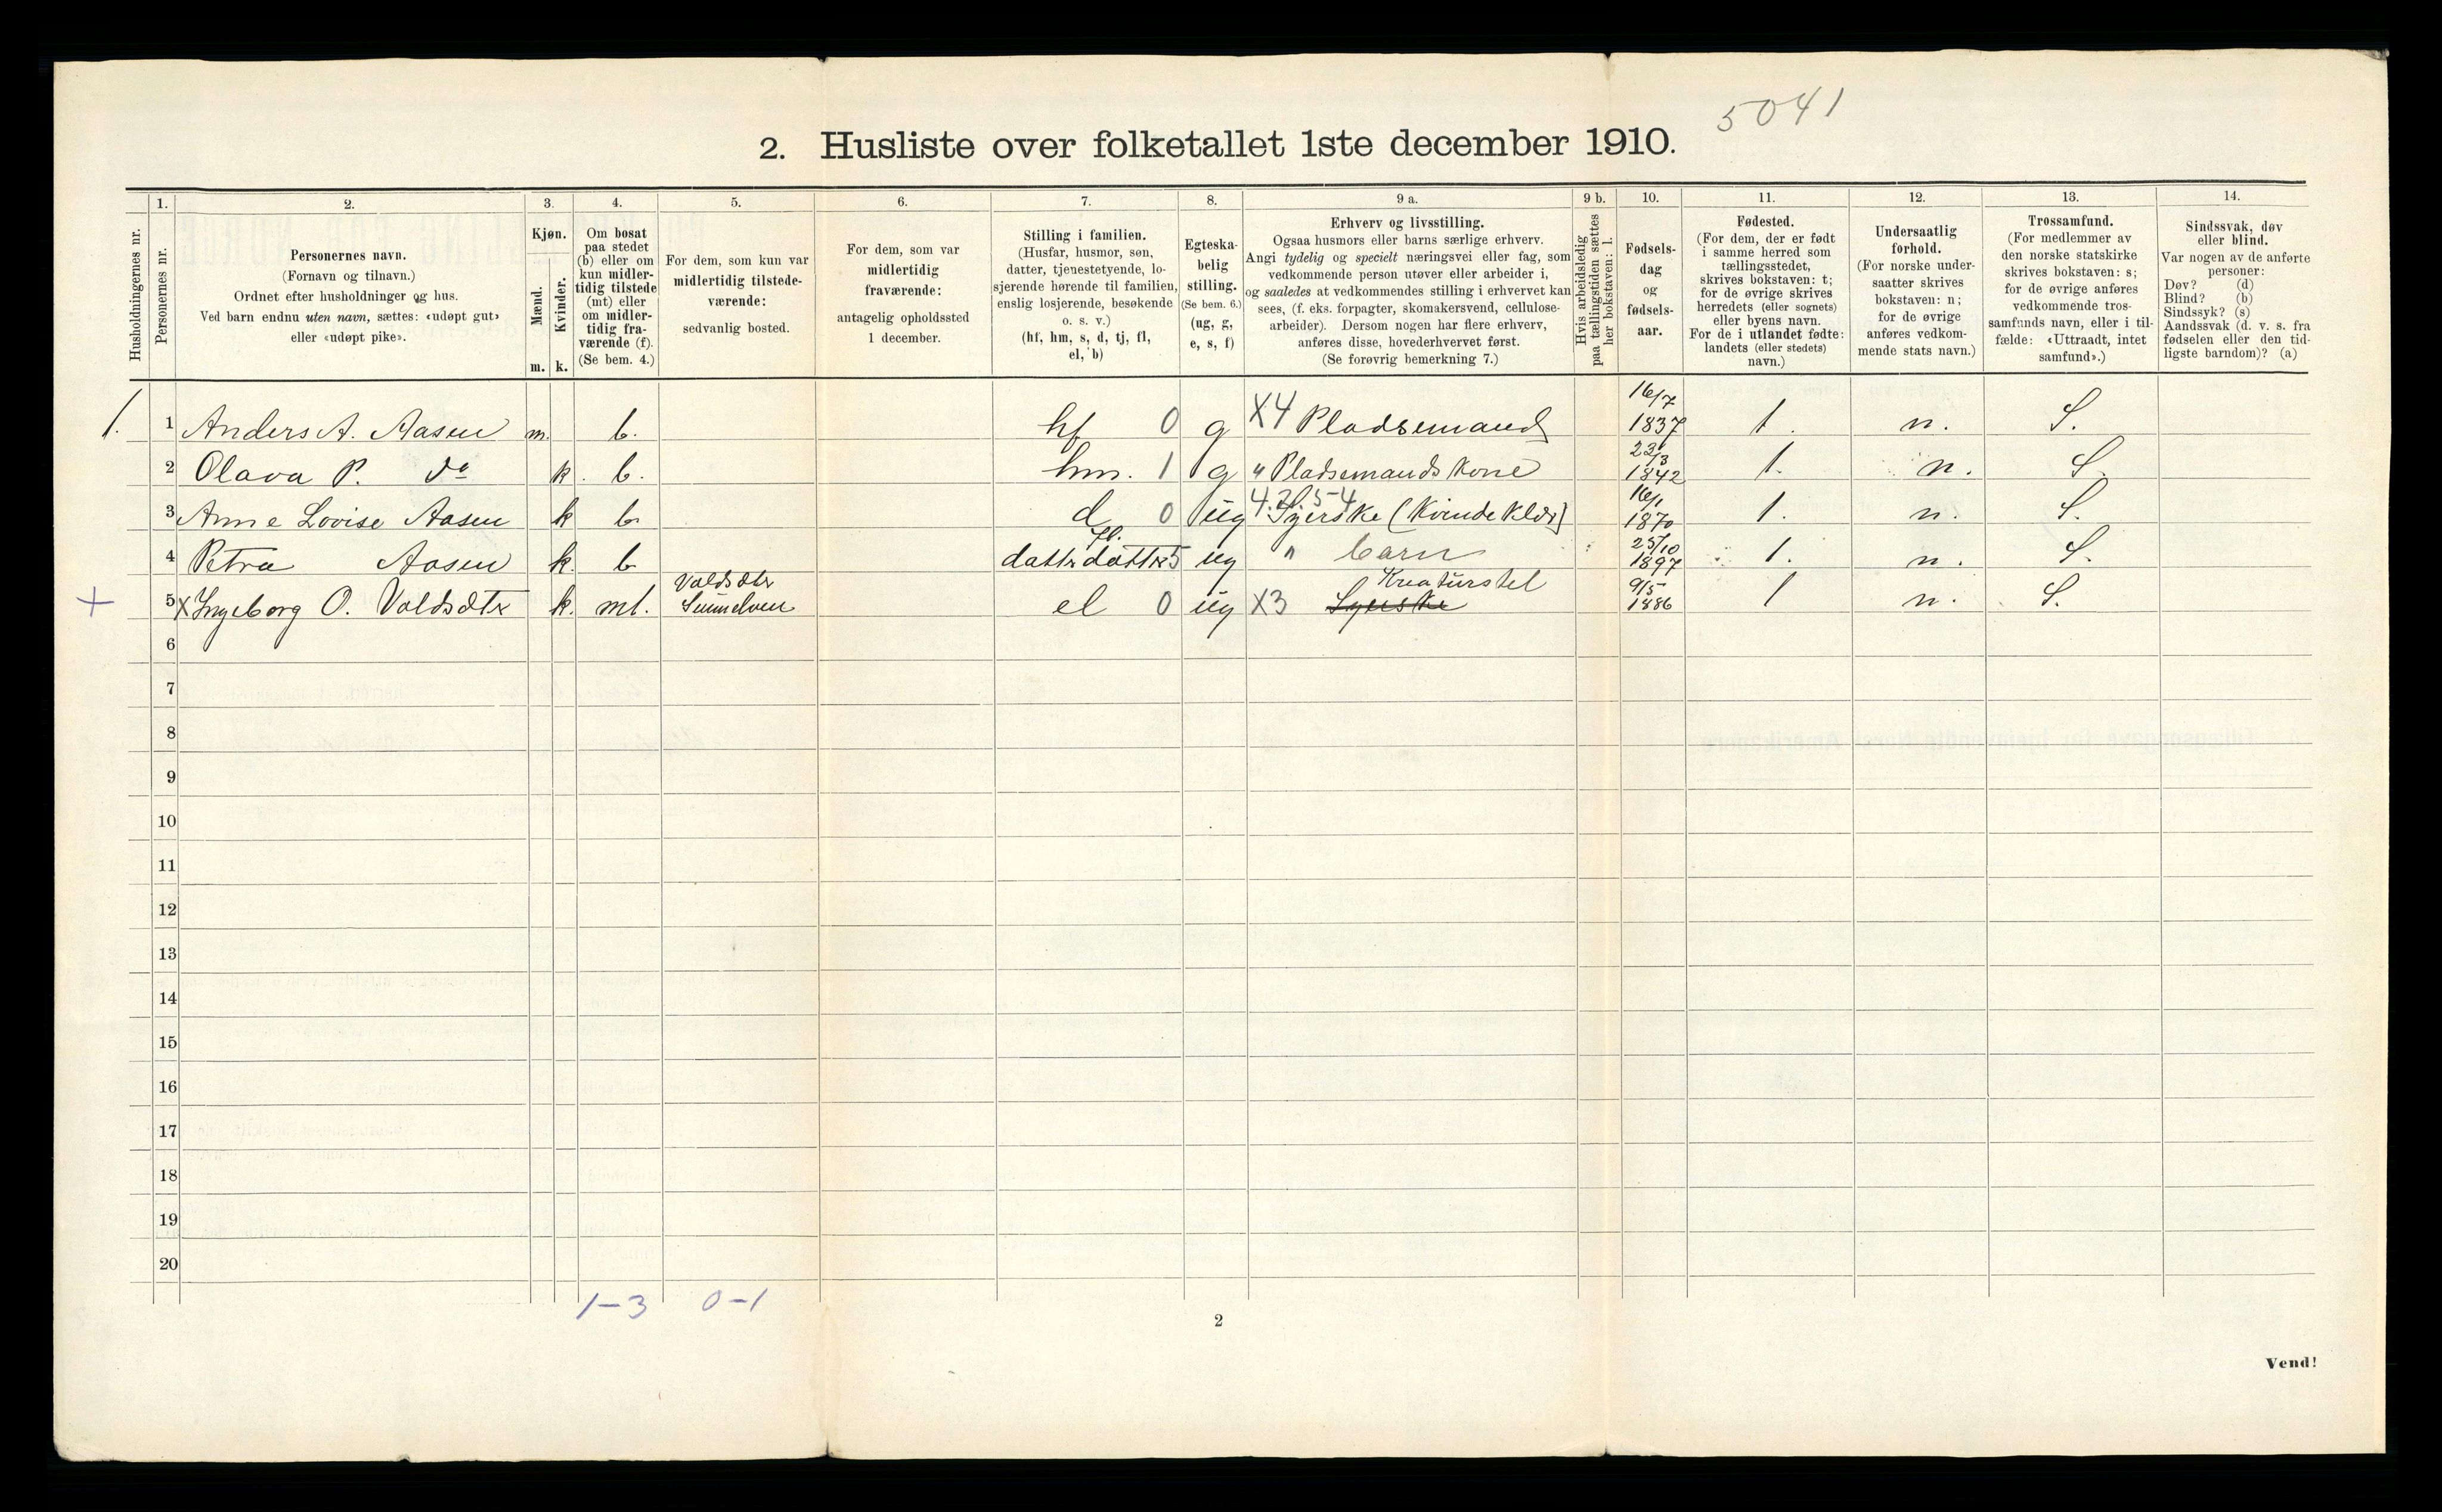 5041
2. Husliste over folketallet 1ste december 1910.
Husholdningernes nr.
1.
Personernes nr.
2.
Personernes navn.
(Fornavn og tilnavn.)
Ordnet efter husholdninger og hus.
Ved barn endnu uten navn, sættes: «udøpt gut»
eller «udøpt pike».
3.
Kjøn.
Mænd.
Kvinder.
m. k.
4.
Om bosat
paa stedet
(b) eller om
kun midler-
tidig tilstede
(mt) eller
om midler-
tidig fra-
værende (f).
(Se bem. 4.)
5.
For dem, som kun var
midlertidig tilstede-
værende:
sedvanlig bosted.
6.
For dem, som var
midlertidig
fraværende:
antagelig opholdssted
1 december.
7.
Stilling i familien.
(Husfar, husmor, søn,
datter, tjenestetyende, lo-
sjerende hørende til familien,
enslig losjerende, besøkende
o. s. v.)
(hf, hm, s, d, tj, fl,
el, b)
8.
Egteska-
belig
stilling.
(Se bem. 6.)
(ug, g,
e, s, f)
9 a.
Erhverv og livsstilling.
Ogsaa husmors eller barns særlige erhverv.
Angi tydelig og specielt næringsvei eller fag, som
vedkommende person utøver eller arbeider i,
og saaledes at vedkommendes stilling i erhvervet kan
sees, (f. eks. forpagter, skomakersvend, cellulose-
arbeider). Dersom nogen har flere erhverv,
anføres disse, hovederhvervet først.
(Se forøvrig bemerkning 7.)
9 b.
Hvis arbeidsledig
paa tællingstiden sættes
her bokstaven: l.
10.
Fødsels-
dag
og
fødsels-
aar.
11.
Fødested.
(For dem, der er født
i samme herred som
tællingsstedet,
skrives bokstaven: t;
for de øvrige skrives
herredets (eller sognets)
eller byens navn.
For de i utlandet fødte:
landets (eller stedets)
navn.)
12.
Undersaatlig
forhold.
(For norske under-
saatter skrives
bokstaven: n;
for de øvrige
anføres vedkom-
mende stats navn.)
13.
Trossamfund.
(For medlemmer av
den norske statskirke
skrives bokstaven: s;
for de øvrige anføres
vedkommende tros-
samfunds navn, eller i til-
fælde: «Uttraadt, intet
samfund».)
14.
Sindssvak, døv
eller blind.
Var nogen av de anførte
personer:
Døv? (d)
Blind? (b)
Sindssyk? (s)
Aandssvak (d. v. s. fra
fødselen eller den tid-
ligste barndom)? (a)
1. 1 Anders A. Aasen m. b. hf 0 g X4 Pladsemand 16/7 1837 t. n. S.
2 Olava P. do k. b. hm. 1 g " Pladsemands kone 22/3 1842 t. n. S.
3 Anne Lovise Aasen k b d 0 ug Syerske (Kvindeklær) 16/1 1870 t. n. S.
4 Petra Aasen k. b fl. datterdatter 5 ug " barn 25/10 1897 t. n. S.
+ 5 X Ingeborg O. Voldsdtr k. mt. Voldsdtr Sunnelven el 0 ug X3 Syerske Kreaturstel 9/5 1886 t n. S.
6
7
8
9
10
11
12
13
14
15
16
17
18
19
20
1-3 0-1
2
Vend!